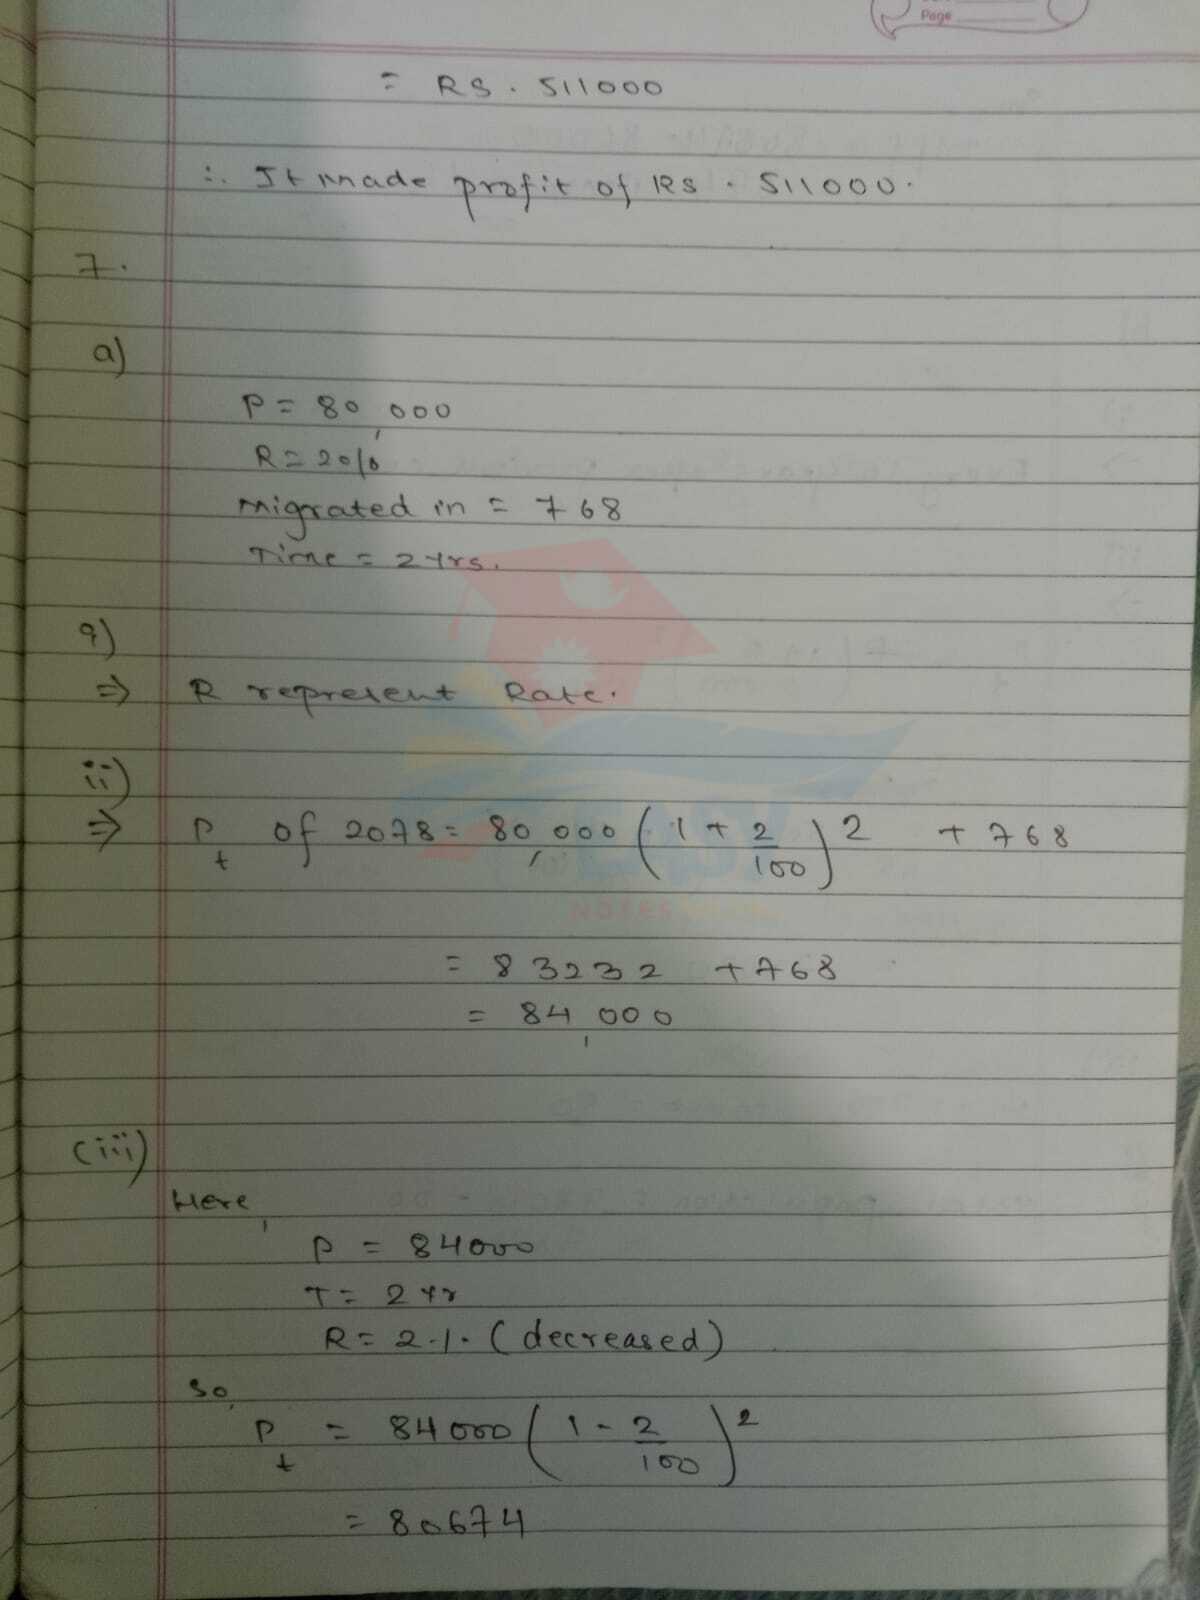 Page
= RS. 511000
∴ It made profit of Rs. 511000.
7.
a)
P = 80,000
R = 2%
Migrated in = 768
Time = 2 yrs.
i)
⇒ R represent Rate.
ii)
⇒ Pt of 2078 = 80,000 (1 + 2/100)2 + 768
= 83232 + 768
= 84,000
(iii)
Here,
P = 84000
T = 2 yr
R = 2% (decreased)
So,
Pt = 84000 (1 - 2/100)2
= 80674
EASY
NOTES